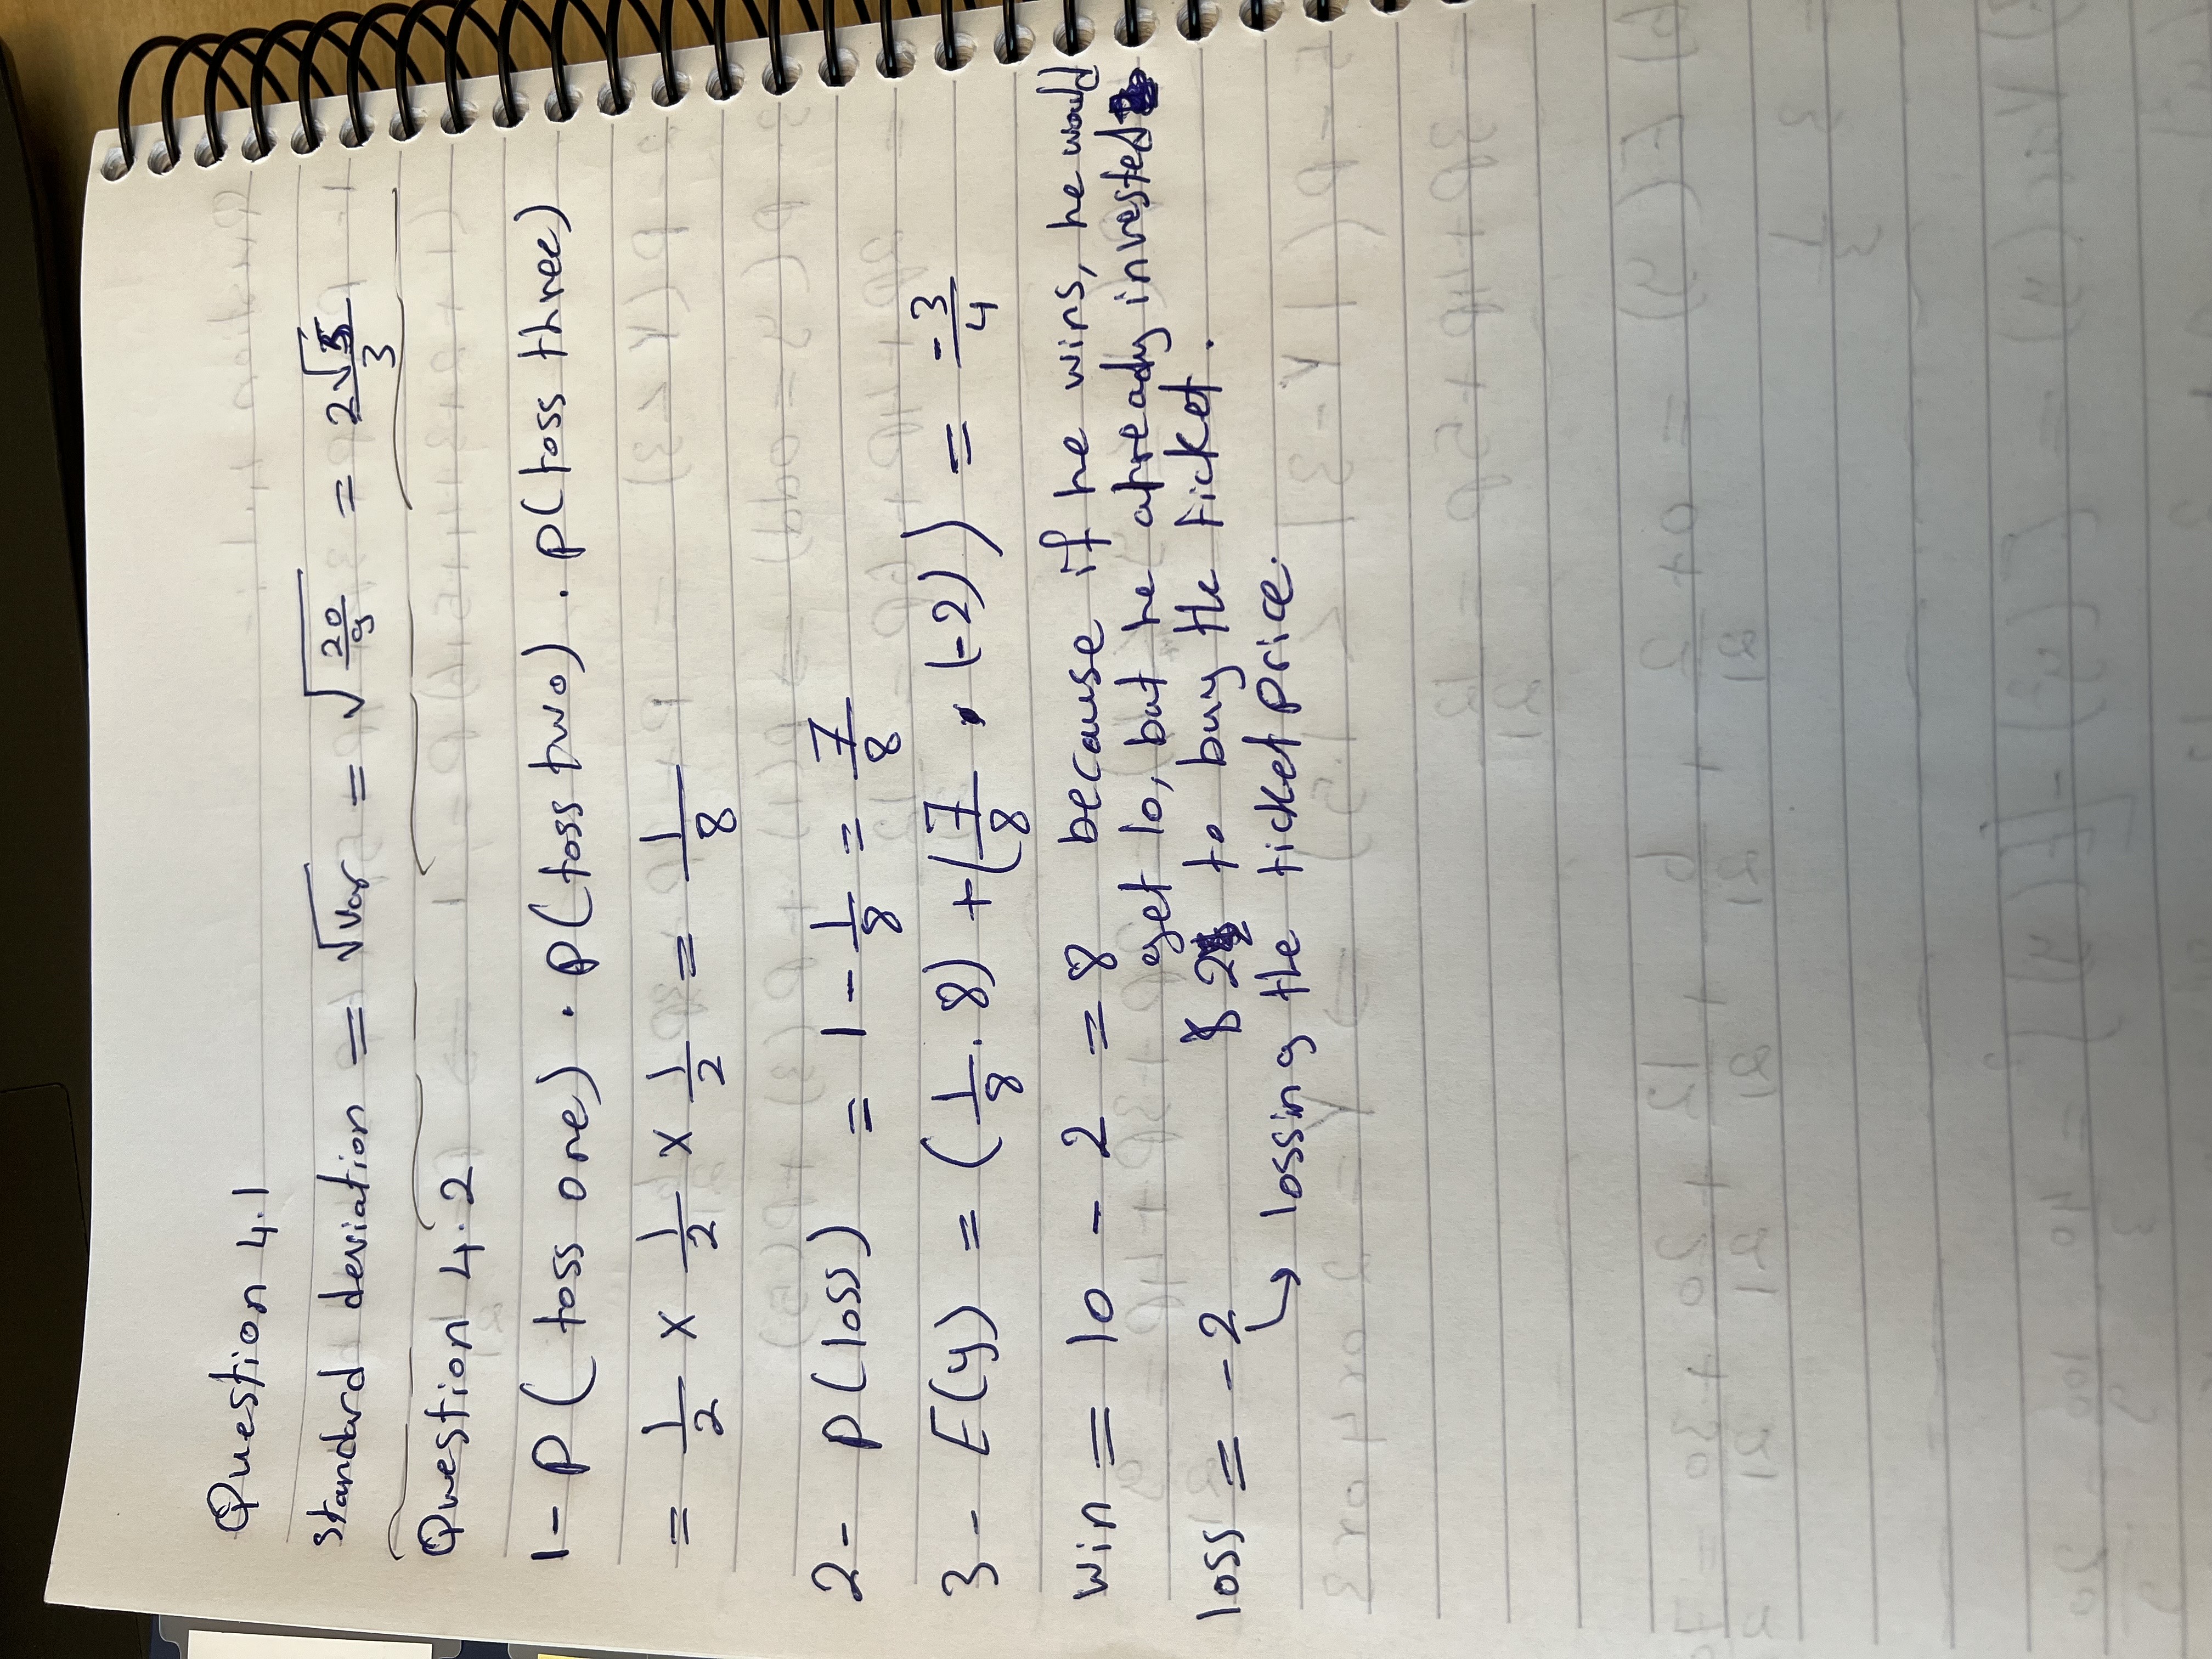 Question 4.1
standard deviation = √var = √(20/9) = 2√5/3
Question 4.2
1- P( toss one) · P(toss two) . P(toss three)
= 1/2 × 1/2 × 1/2 = 1/8
2- P(loss) = 1 - 1/8 = 7/8
3- E(y) = (1/8 . 8) + (7/8 · (-2)) = -3/4
win = 10 - 2 = 8 because if he wins, he would
get 10, but he already invested
loss = -2 $2 to buy the ticket.
↳ lossing the ticket price.